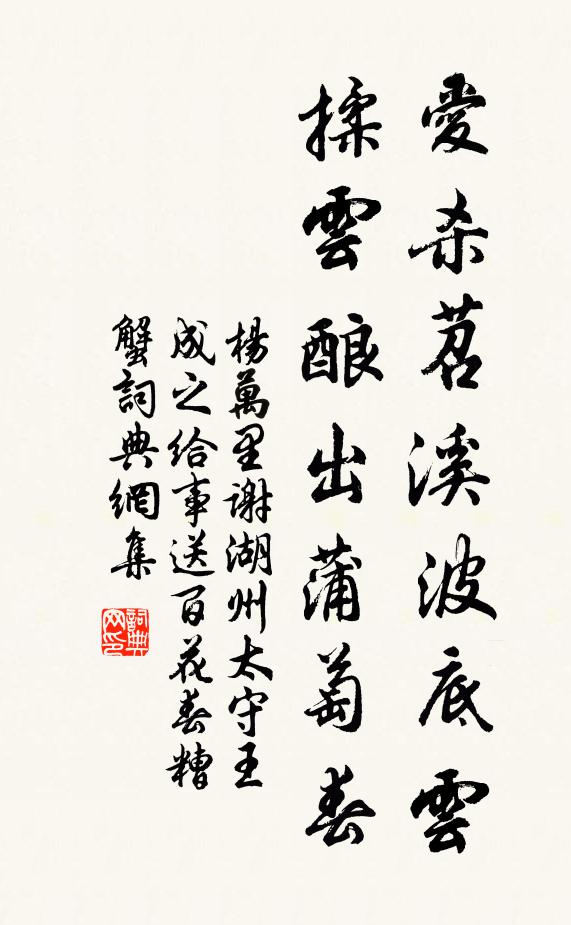 愛杀苕溪波底雲
揉雲酿出蒲萄春
楊萬里謝湖州太守王
成之给事送百花春糟
蟹詞典網集
詞典
网印